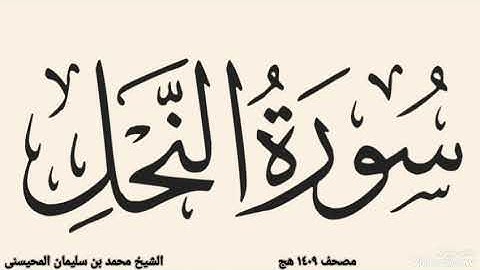 سُورَةُ النَّحْلِ
مصحف ١٤٠٩ هج
الشيخ محمد بن سليمان المحيسنى